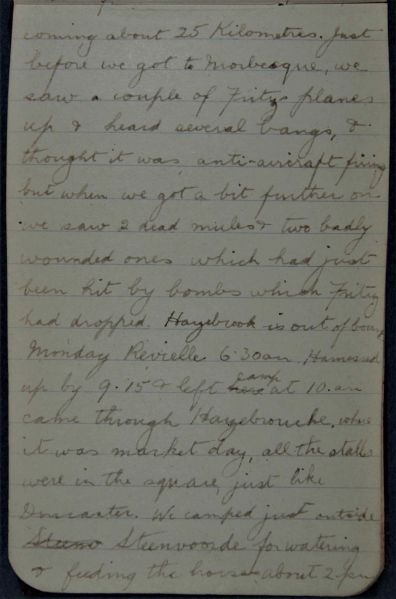 coming about 25 Kilometres. Just
before we got to Morbecque, we
saw a couple of Fritz planes
up & heard several bangs, &
thought it was anti-aircraft firing
but when we got a bit further on
we saw 2 dead mules & two badly
wounded ones which had just
been hit by bombs which Fritz
had dropped. Hazebrook is out of boun
Monday Revielle 6.30am Harnessed
up by 9.15 & left here camp at 10. am
came through Hazebrouche, where
it was market day, all the stalls
were in the square, just like
Doncaster. We camped just outside
Steenvoorde for watering
& feeding the horses about 2 pm